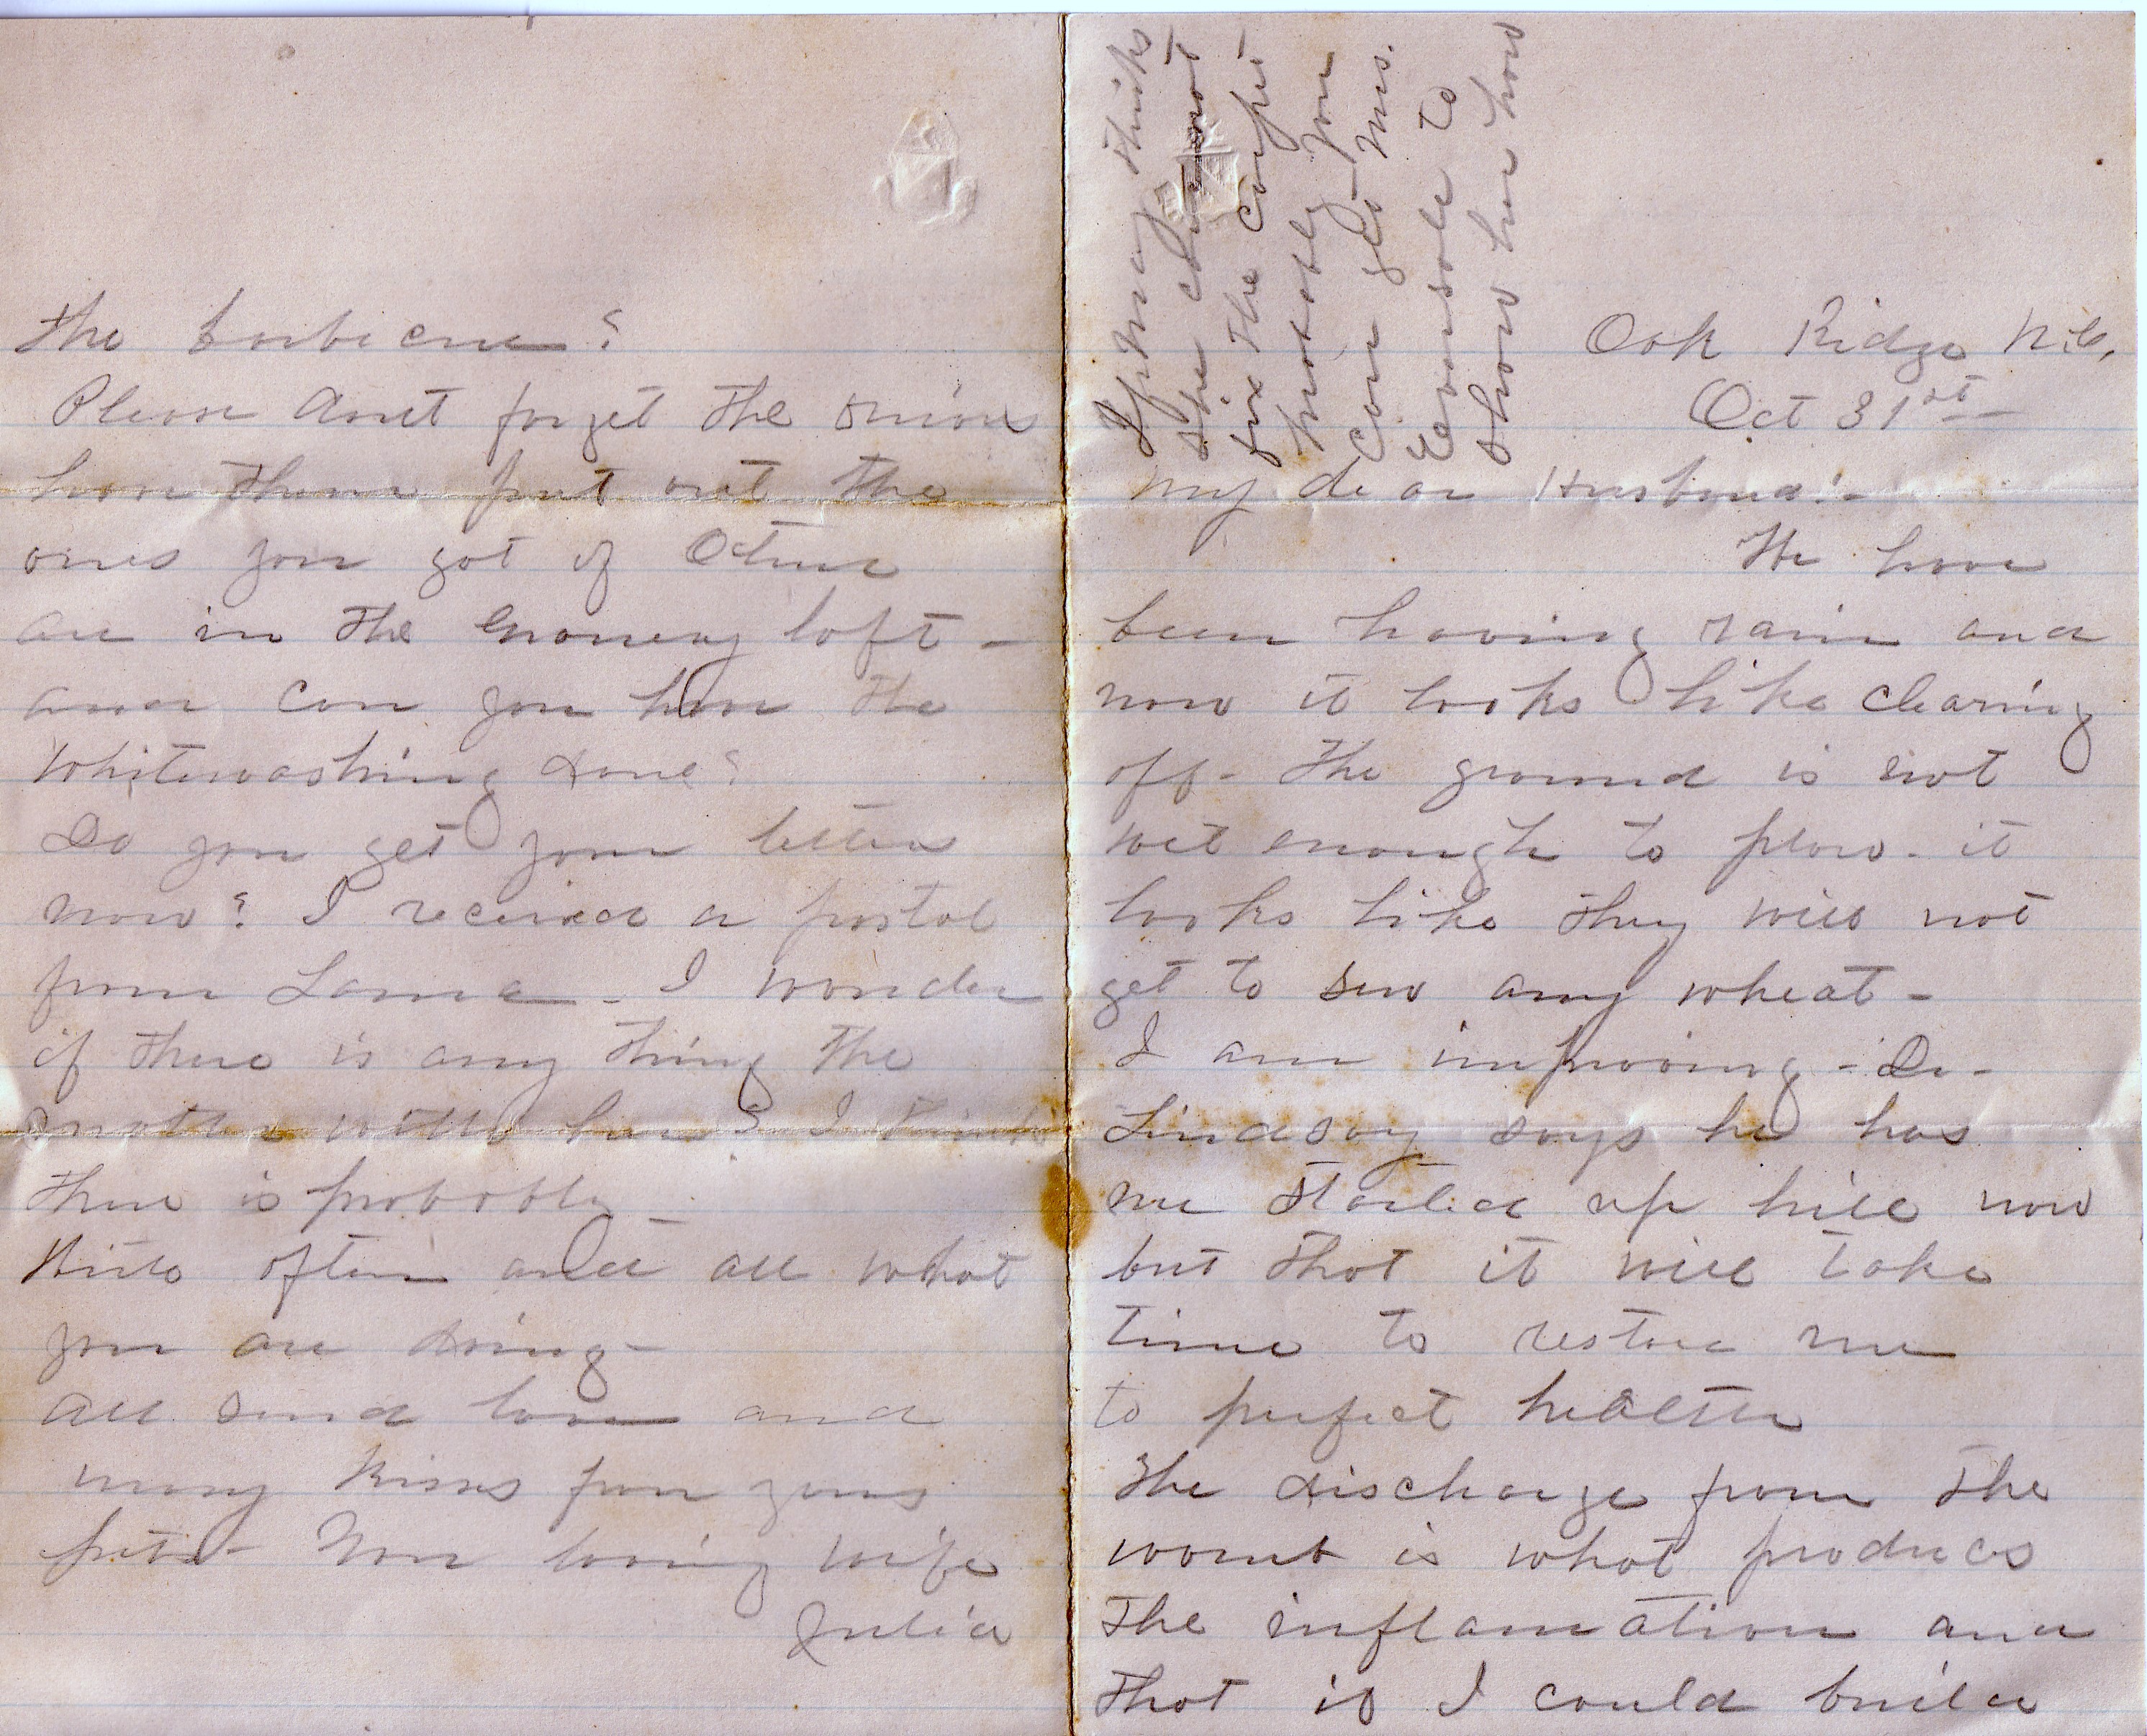 Oak Ridge N.C.
Oct 31st
My dear Husband!-
We have
been having rain and
now it looks like clearing
off- the ground is not
wet enough to plow- it
looks like they will not
get to sow any wheat-
I am improving- Dr-
Lindsay says he has
me started up hill now
but that it will take
time to restore me
to perfect health
The discharge from the
womb is what produces
the inflamation and
that if I could build
the barbecue?
Please dont forget the onions
have them put out the
ones you got of
are in the Granery loft-
and can you have the
Whitewashing done?
Do you get your letters
now? I received a postal
from I wonder
if there is any thing the
matter with her? I think
there is probably-
Write often and all what
you are doing-
All send love and
many kisses from your
pets- Your loving wife
Julia
If May thinks
she can not
fix the carpet
probably you
can get Mrs.
to
show her how